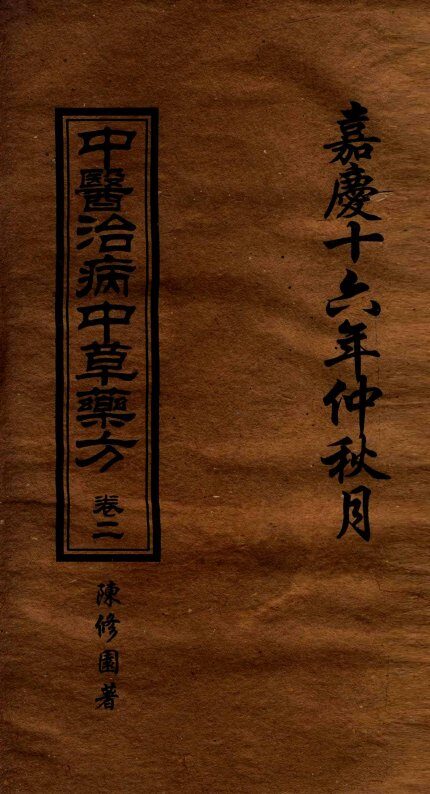 嘉慶十六年仲秋月
中醫治病中草藥方
卷二
陳修園著